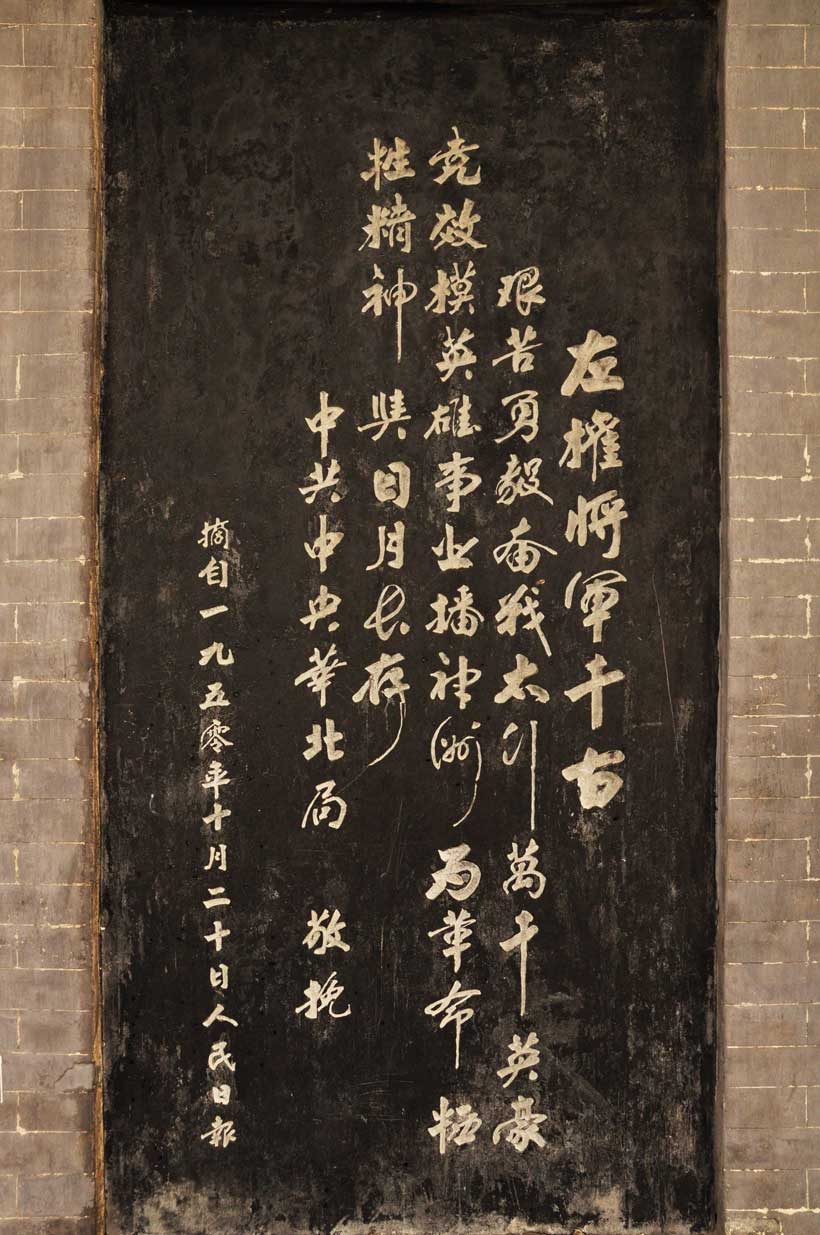 左權將軍千古
艰苦勇毅奋战太行萬千英豪
竞效模英雄事业播神洲為革命牺
牲精神與日月长存
中共中央華北局 敬挽
摘自一九五零年十月二十日人民日報